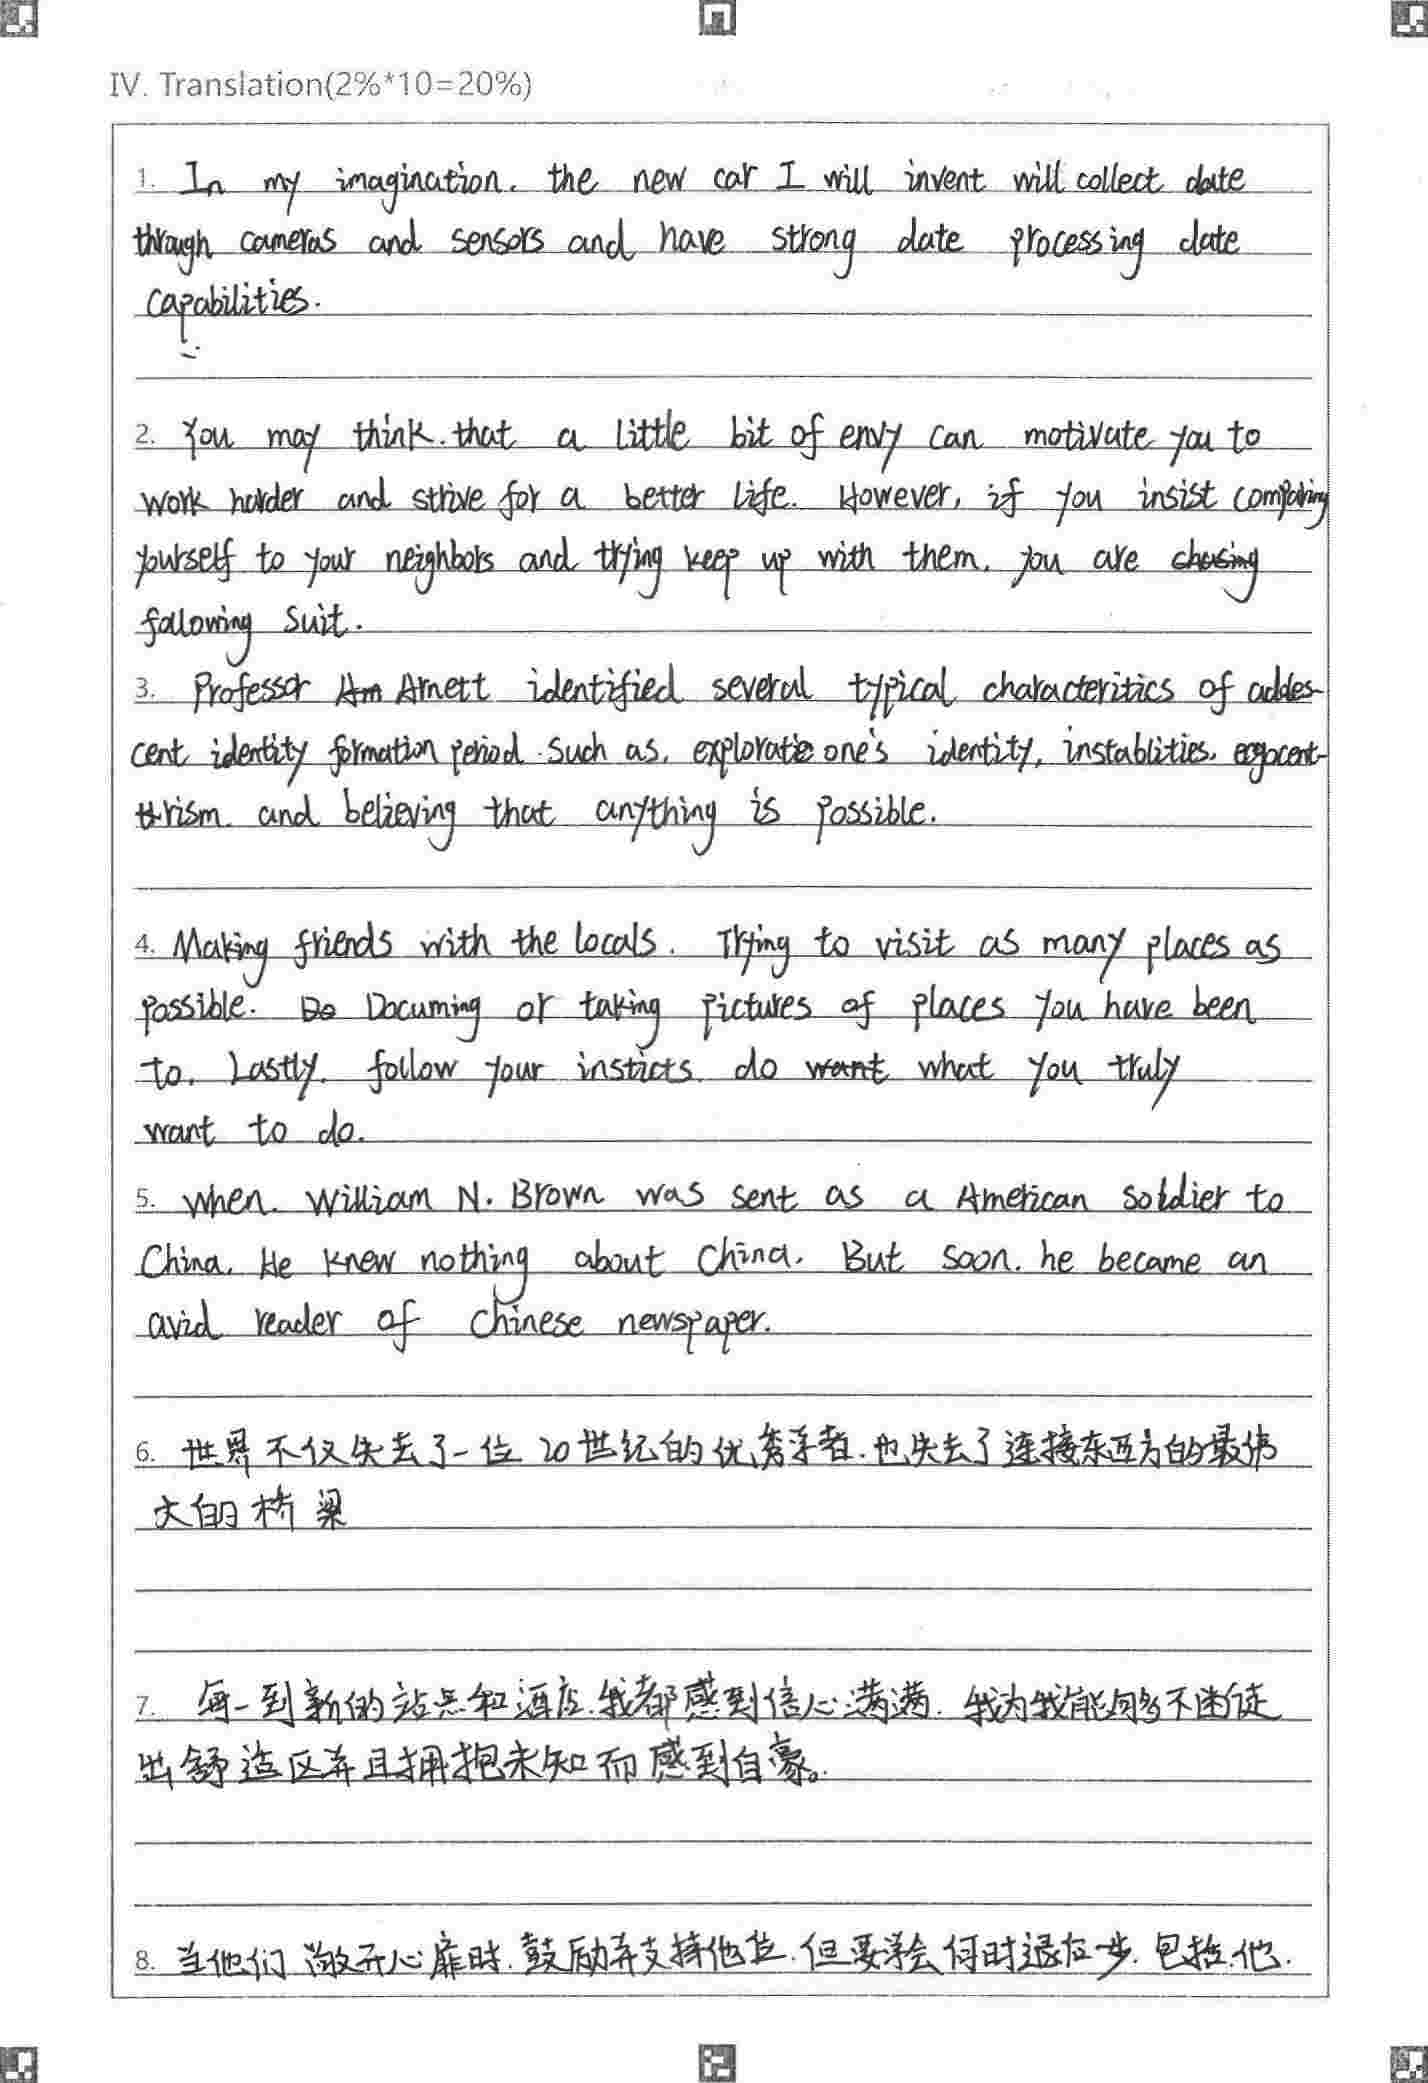 IV. Translation(2%*10=20%)
1. In my imagination. the new car I will invent will collect date
through cameras and sensors and have strong date processing date
capabilities.
2. You may think that a little bit of envy can motivate you to
work harder and strive for a better life. However, if you insist comparing
yourself to your neighbors and trying keep up with them, you are chasing
following suit.
3. Professor Am Arnett identified several typical characteritics of addes-
cent identity formation period such as, exploratie one's identity, instablities, egocent-
trism and believing that anything is possible.
4. Making friends with the locals. Trying to visit as many places as
possible. Do Documing or taking pictures of places you have been
to. Lastly, follow your insticts do want what you truly
want to do.
5. When William N. Brown was sent as a American soldier to
China. He knew nothing about China. But soon. he became an
avid reader of Chinese newspaper.
6. 世界不仅失去了一位20世纪的优秀学者.也失去了连接东西方的最伟
大的桥梁
7. 每一到新的站点和酒店.我都感到信心满满.我为我能够不断走
出舒适区并且拥抱未知而感到自豪。
8. 当他们敞开心扉时.鼓励并支持他们.但要学会何时退后一步.包括.他.